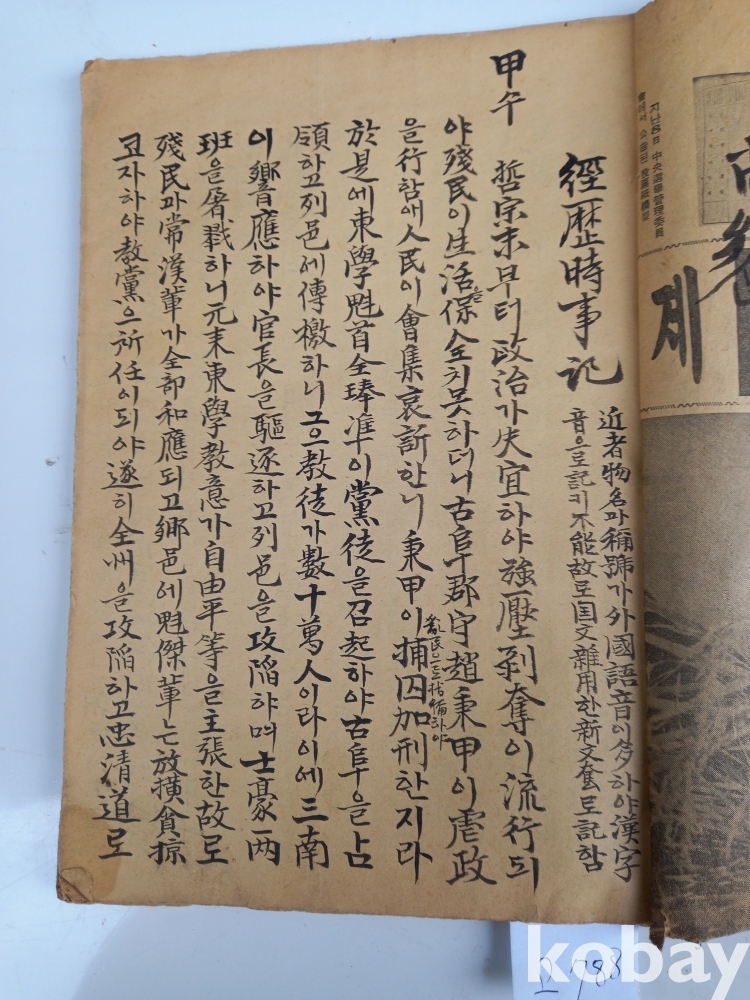 經歷時事記
近者物名과稱號가外國語音이多하야漢字
音으로記키不能故로国文雜用한新文套로記함
甲午
哲宗末부터政治가失宜하야强壓剝奪이流行되
야殘民이生活을保全치못하더니古阜郡守趙秉甲이虐政
을行함애人民이會集哀訴한니秉甲이亂民으로指備하야捕囚加刑한지라
於是에東學魁首全琫準이黨徒을召起하야古阜을占
領하고列邑에傳檄하니그으敎徒가數十萬人이라이에三南
이響應하야官長을驅逐하고列邑을攻陷하며士豪兩
班을屠戮하니元來東學敎意가自由平等을主張한故로
殘民과常漢輩가全部和應되고鄕邑에魁傑輩는放橫貪掠
코자하야敎黨으所任이되야遂히全州을攻陷하고忠淸道로
지난5日 中央選擧管理委員
제
kobay
788